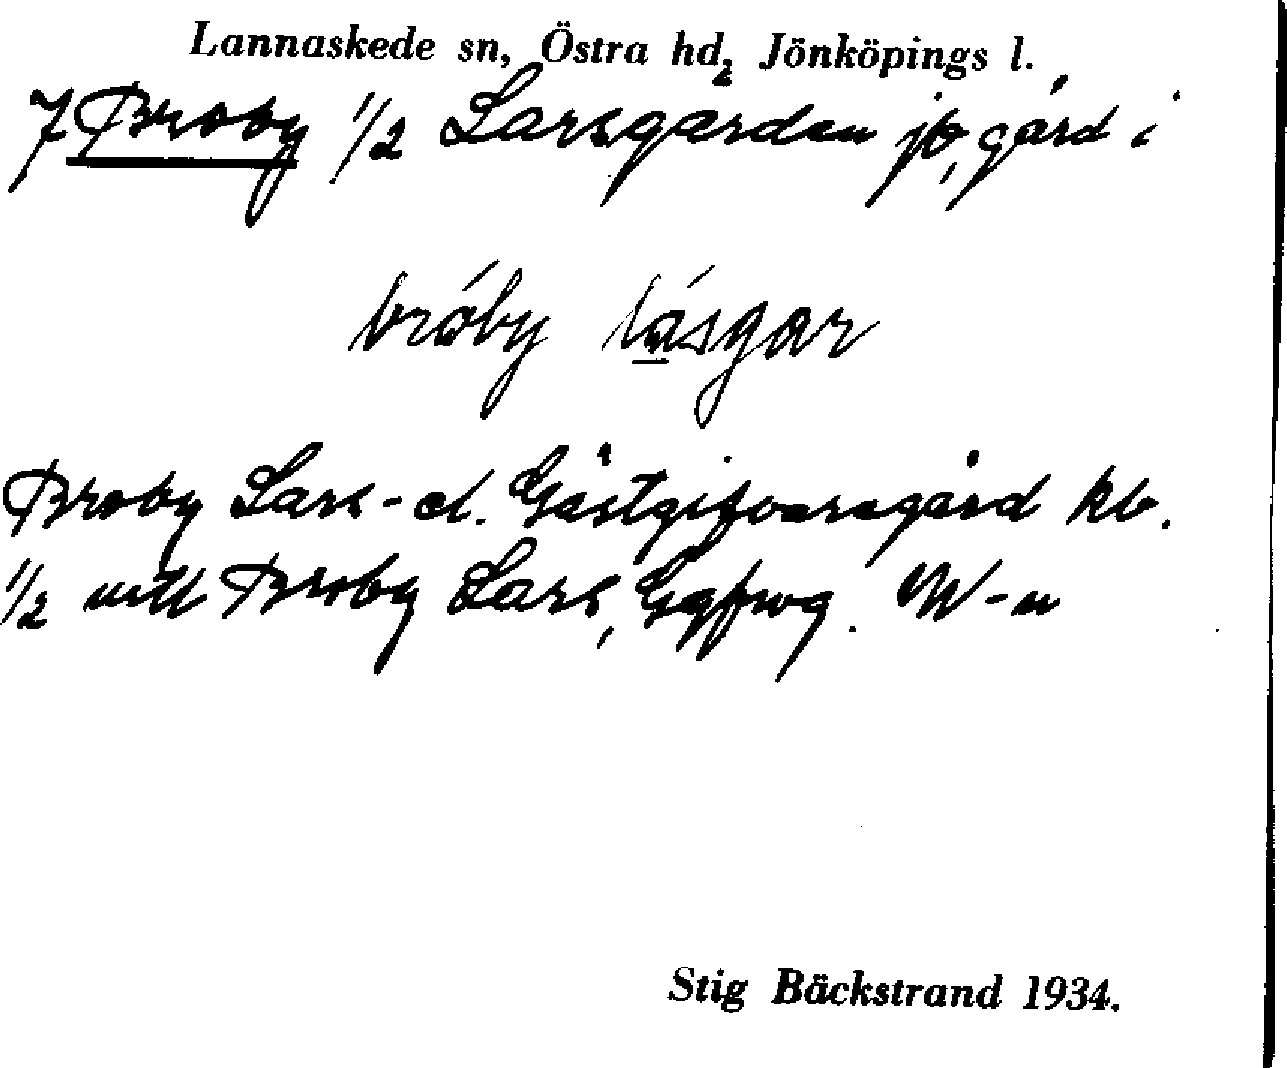 Lannaskede sn, Östra hd, Jönköpings l.
7 Broby 1/2 Larsgården jb, gård i
2
bróby lásgar
Broby Lars- el. Gästgifvaregård kb.
1/2 mtl Broby Lars, Ggfvog. W-n
Stig Bäckstrand 1934.